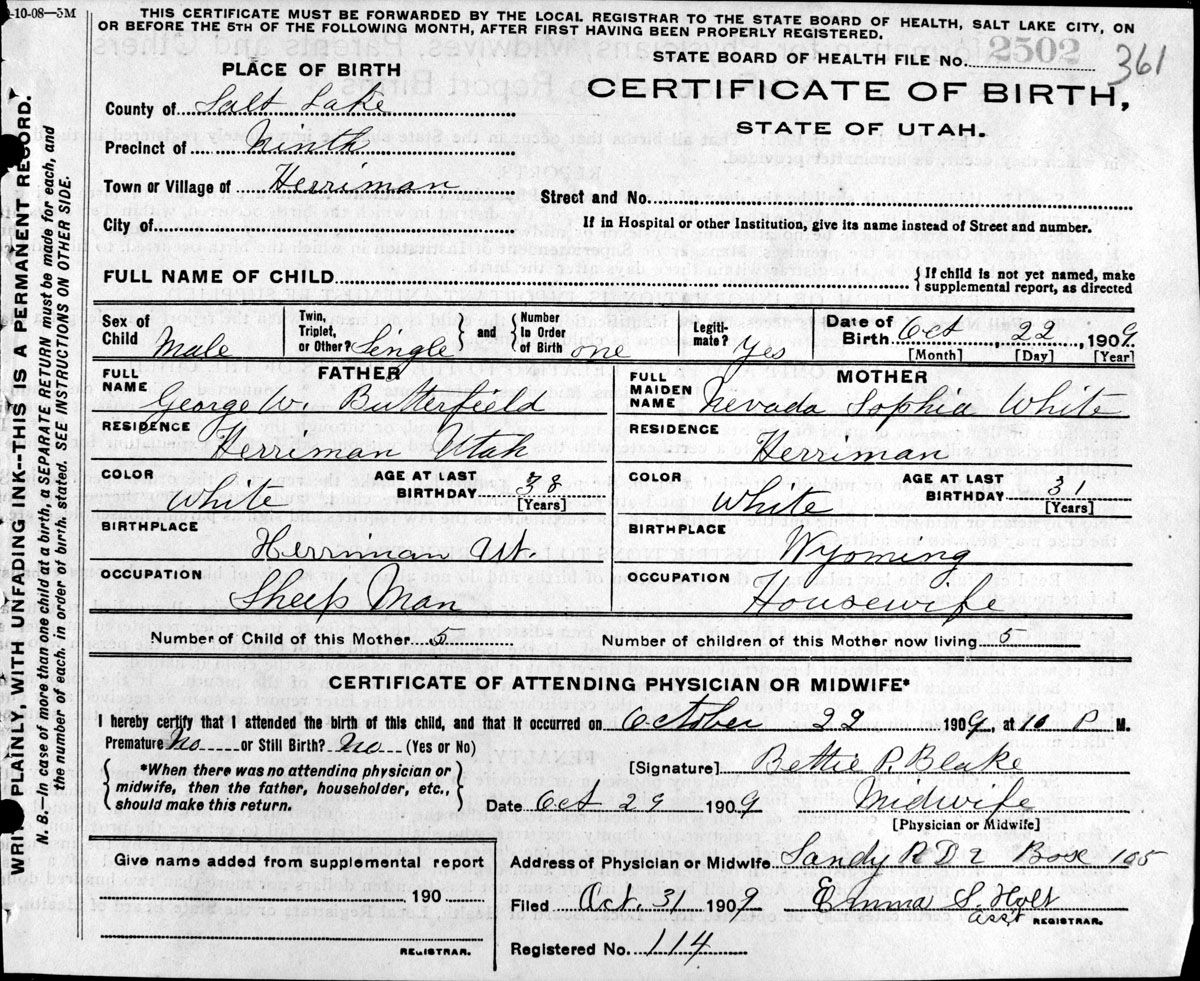 -10-08—5M
THIS CERTIFICATE MUST BE FORWARDED BY THE LOCAL REGISTRAR TO THE STATE BOARD OF HEALTH, SALT LAKE CITY, ON
OR BEFORE THE 5TH OF THE FOLLOWING MONTH, AFTER FIRST HAVING BEEN PROPERLY REGISTERED.
2502
STATE BOARD OF HEALTH FILE No.
361
PLACE OF BIRTH
CERTIFICATE OF BIRTH,
STATE OF UTAH.
County of Salt Lake
Precinct of Ninth
Town or Village of Herriman
Street and No.
City of
If in Hospital or other Institution, give its name instead of Street and number.
FULL NAME OF CHILD
{If child is not yet named, make
supplemental report, as directed
Sex of Child Male
Twin, Triplet, or Other? Single
and
Number In Order of Birth one
Legiti-mate? Yes
Date of Birth Oct 22, 1909
[Month] [Day] [Year]
FATHER
FULL NAME George W. Butterfield
MOTHER
FULL MAIDEN NAME Nevada Sophia White
RESIDENCE Herriman Utah
RESIDENCE Herriman
COLOR White
AGE AT LAST BIRTHDAY 38 [Years]
COLOR White
AGE AT LAST BIRTHDAY 31 [Years]
BIRTHPLACE Herriman Ut.
BIRTHPLACE Wyoming
OCCUPATION Sheep Man
OCCUPATION Housewife
Number of Child of this Mother 5
Number of children of this Mother now living 5
CERTIFICATE OF ATTENDING PHYSICIAN OR MIDWIFE*
I hereby certify that I attended the birth of this child, and that it occurred on October 22 1909, at 10 P M.
Premature No or Still Birth? No (Yes or No)
{*When there was no attending physician or
midwife, then the father, householder, etc.,
should make this return.}
[Signature] Bettie P. Blake
Date Oct 29 1909 Midwife
[Physician or Midwife]
Give name added from supplemental report
190
REGISTRAR.
Address of Physician or Midwife Sandy R D 2 Box 105
Filed Oct. 31 1909 Emma S. Holt
asst REGISTRAR.
Registered No. 114
PLAINLY, WITH UNFADING INK--THIS IS A PERMANENT RECORD.
N. B. In case of more than one child at a birth, a SEPARATE RETURN must be made for each, and
the number of each, in order of birth, stated. SEE INSTRUCTIONS ON OTHER SIDE.